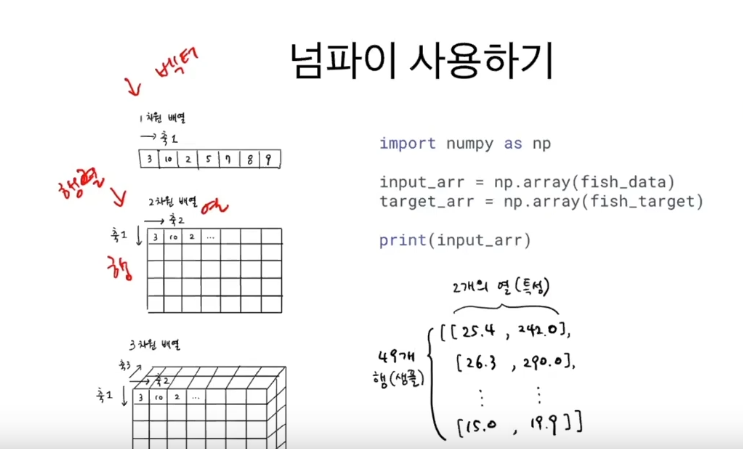 넘파이 사용하기
벡터
1차원 배열
축1
3 10 2 5 7 8 9
행렬
2차원 배열
열
축2
축1
3 10 2 ...
행
3차원 배열
축3
축2
축1
3 10 2 ...
import numpy as np
input_arr = np.array(fish_data)
target_arr = np.array(fish_target)
print(input_arr)
2개의 열(특성)
49개
행(샘플)
[[25.4 , 242.0],
[26.3 , 290.0],
⋮ ⋮
[15.0 , 19.9]]